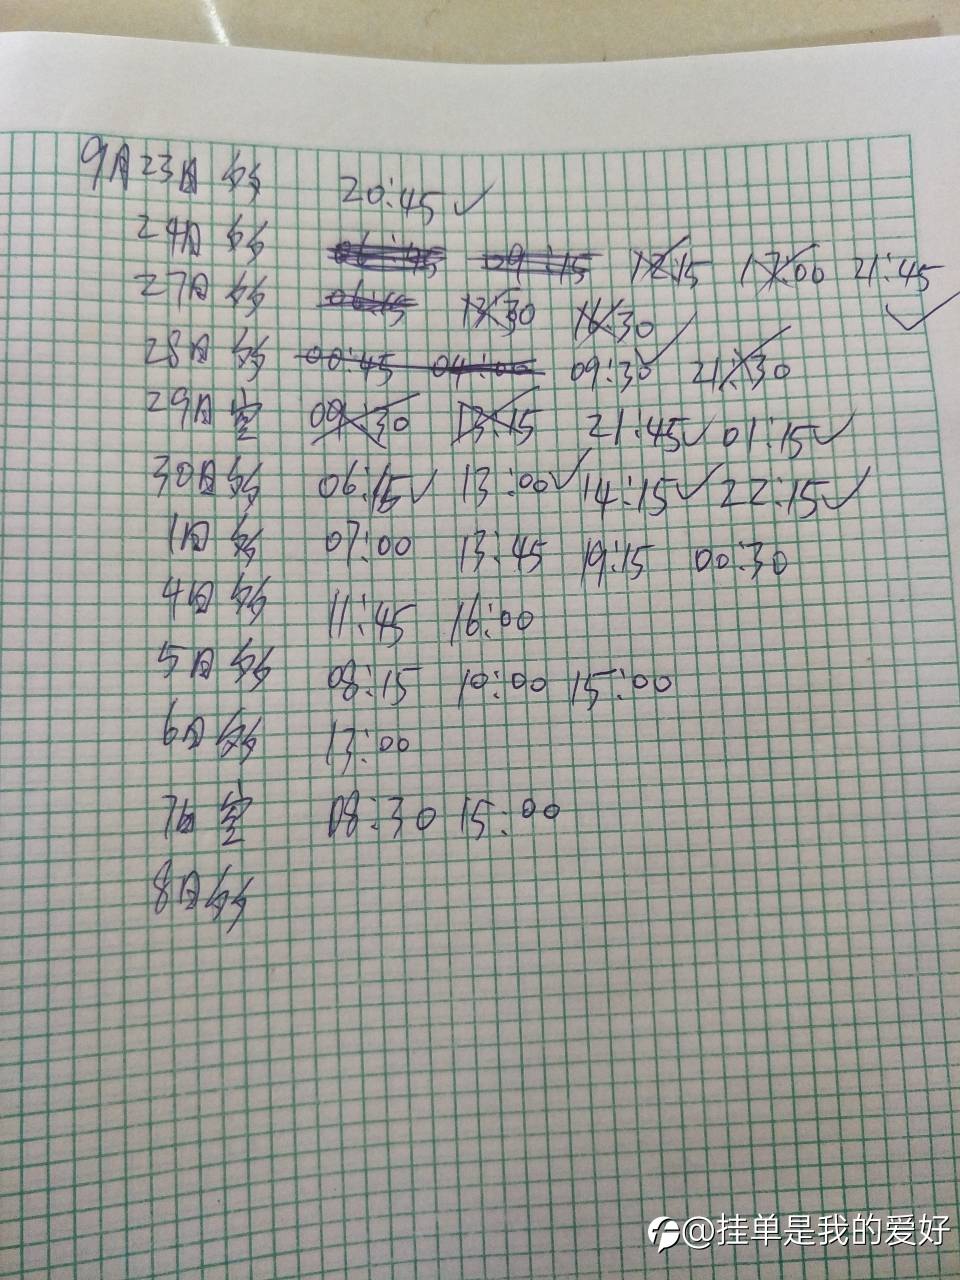 9月23日 多 20:45 ✓
24日 多 06:45 09:15 12:15 17:00 21:45 ✓
27日 多 06:15 13:30 16:30
28日 多 00:45 04:00 09:30 ✓ 21:30
29日 空 09:30 13:15 21:45 ✓ 01:15 ✓
30日 多 06:15 ✓ 13:00 ✓ 14:15 ✓ 22:15 ✓
1日 多 07:00 13:45 19:15 00:30
4日 多 11:45 16:00
5日 多 08:15 10:00 15:00
6日 多 13:00
7日 空 08:30 15:00
8日 多
@挂单是我的爱好